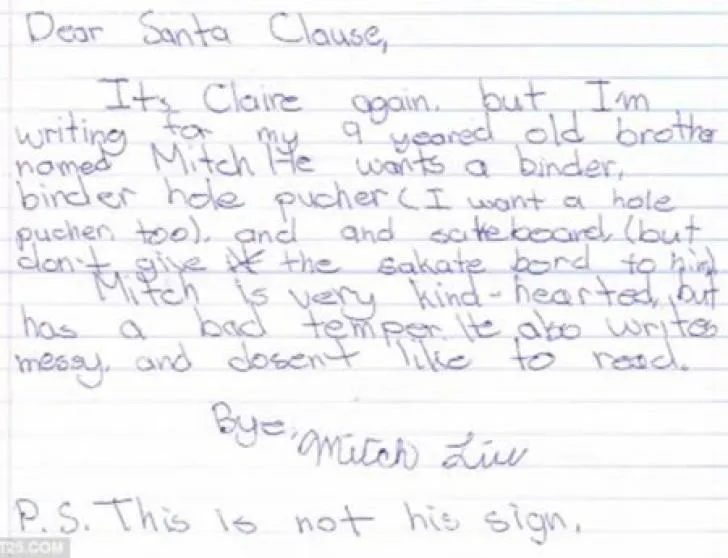 Dear Santa Clause,
Its Claire again. but I'm
writing for my 9 yeared old brothe
named Mitch He wants a binder,
binder hole pucher (I want a hole
pucher too). and and sakeboard, (but
don't give the sakate bord to him)
Mitch is very kind-hearted, but
has a bad temper. He also writes
messy, and dosent like to read.
Bye, Mitch Liu
P.S. This is not his sign.
125.COM